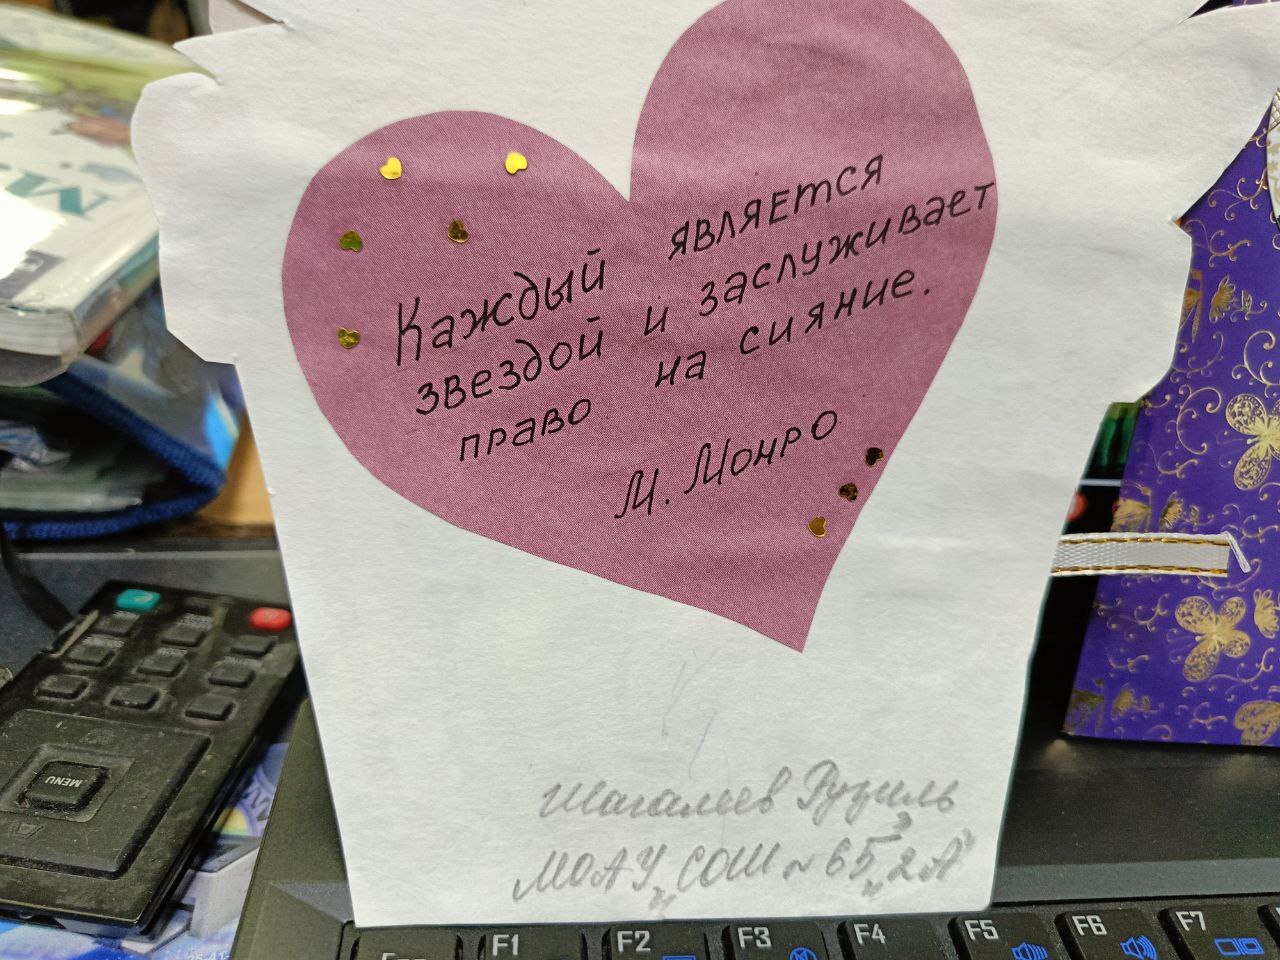 Каждый является
звездой и заслуживает
право на сияние.
М. Монро
Шагалеев Рузиль
МОАУ "СОШ №65" 2А
MENU
F1 F2 F3 F4 F5 F6 F7